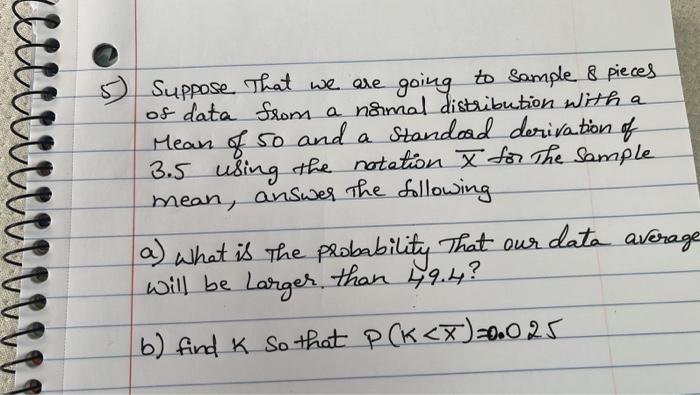 5) Suppose That we are going to sample 8 pieces
of data from a normal distribution with a
Mean of 50 and a standard derivation of
3.5 using the notation X̅ for The Sample
mean, answer The following
a) What is The probability That our data average
will be Larger. than 49.4?
b) find K So that P(K<X̅)=0.025